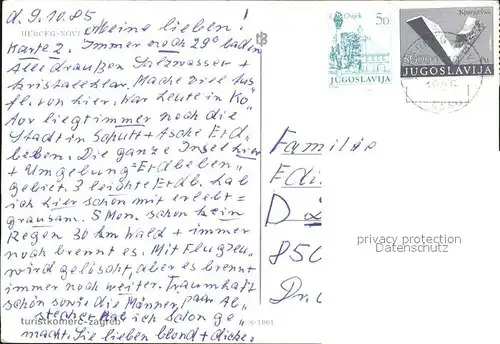 d. 9.10.85
Meine lieben!
HERCEG-NOVI
Karte 2. Immer noch 29° baden
Alle draußen Salzwasser +
kristallklar. Mache viel Aus
fl. von hier. War heute in Ko
tor liegt immer noch die
Stadt in Schutt + Asche Erd
beben. Die ganze Insel hier
+ Umgebung = Erdbeben
gebiet. 3 leichte Erdb. hab
ich hier schon mit erlebt =
grausam. 5 Mon. schon kein
Regen 30 km Wald + immer
noch brennt es. Mit Flugzeu
wird gelöscht, aber es brennt
immer noch weiter. Traumhaft
schön sowie die Männer, paar Ab
stecher hab ich schon ge
macht. Sie lieben blond + dicke.
turistkomerc-zagreb
S-1901
Osijek
5D
JUGOSLAVIJA
Kragujevac
JUGOSLAVIJA
Familie
Edi
D
850
privacy protection
Datenschutz